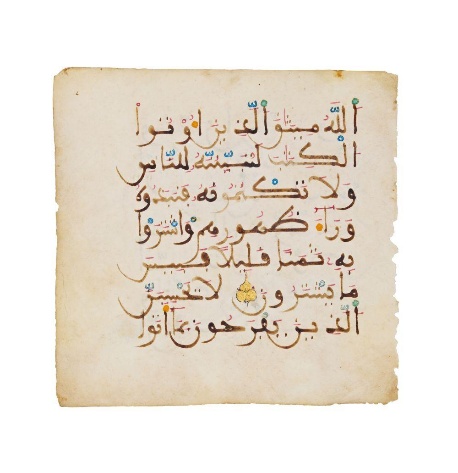 الله ميثق الذين اوتوا
الكتب لتبيننه للناس
ولا تكتمونه فنبذوه
وراء ظهورهم واشتروا
به ثمنا قليلا فبيس
ما يشترون لا تحسبن
الذين يفرحون بما اتوا